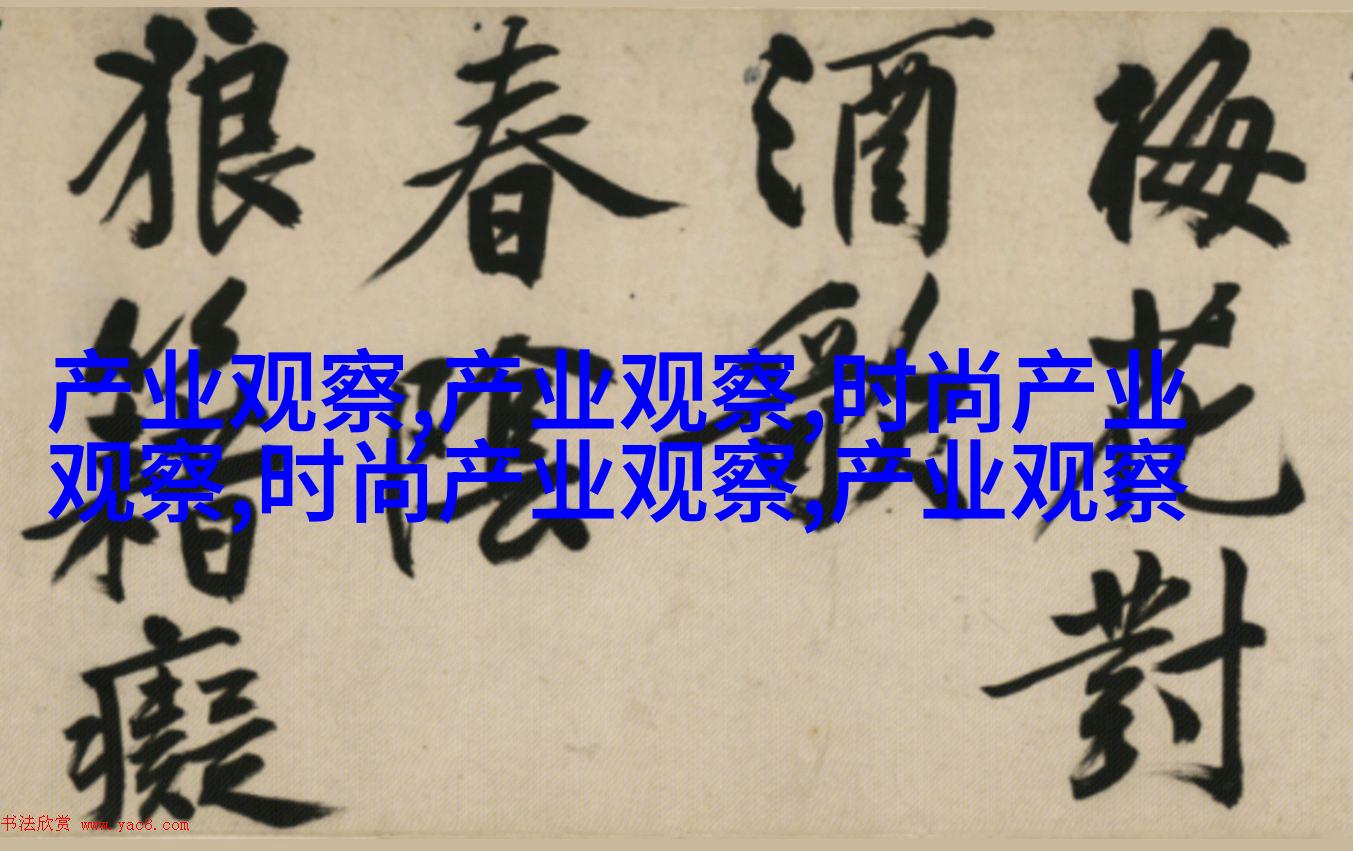 梅花對
酒歌
春陰
狼籍癡
产业观察,产业观察,时尚产业
观察,时尚产业观察,产业观察
书法欣赏 www.yac8.com